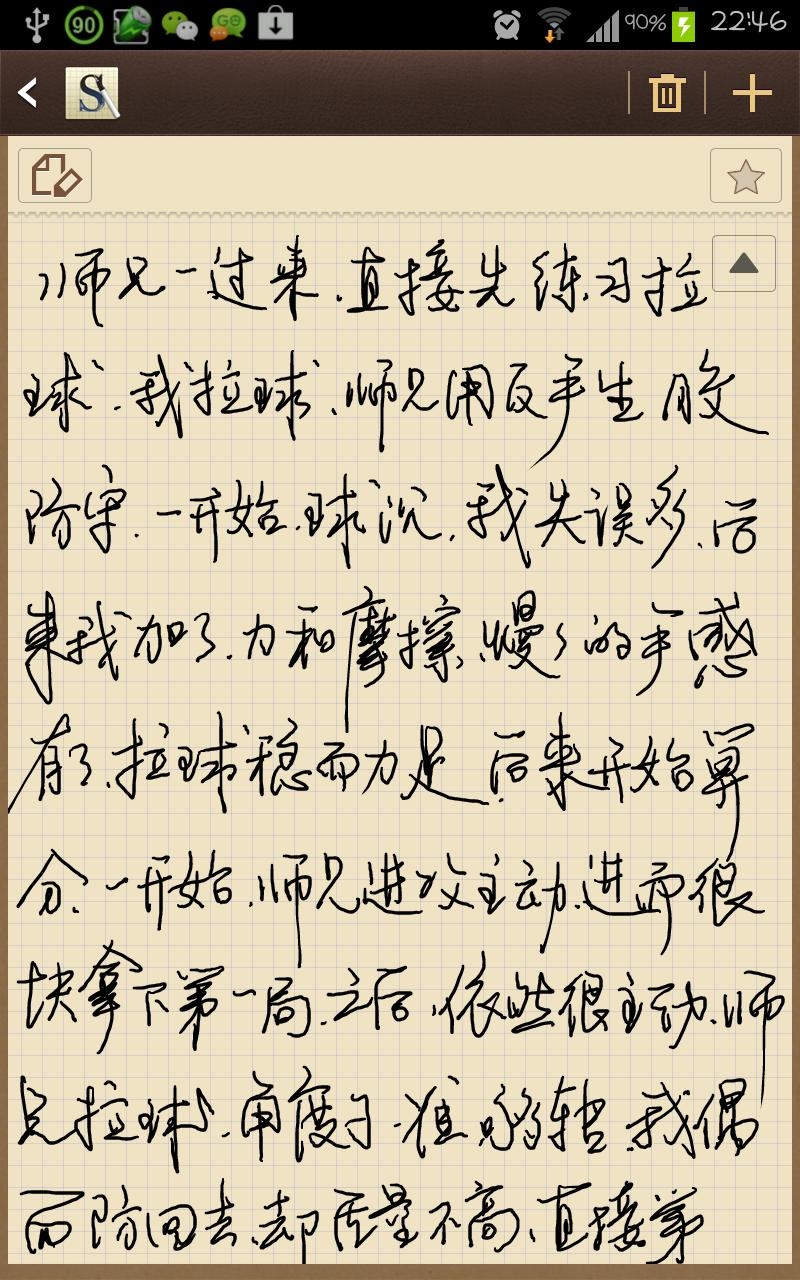 90 GO 90% 22:46
S
师兄一过来.直接先练习拉
球.我拉球.师兄用反手生胶
防守.一开始.球沉.我失误多.后
来我加了.力和摩擦.慢々的手感
有了.拉球稳而力足.后来开始算
分.一开始.师兄进攻主动.进而很
块拿下第一局.之后.依然很主动.师
兄拉球.角度刁.准够转.我偶
而防回去.却质量不高.直接第